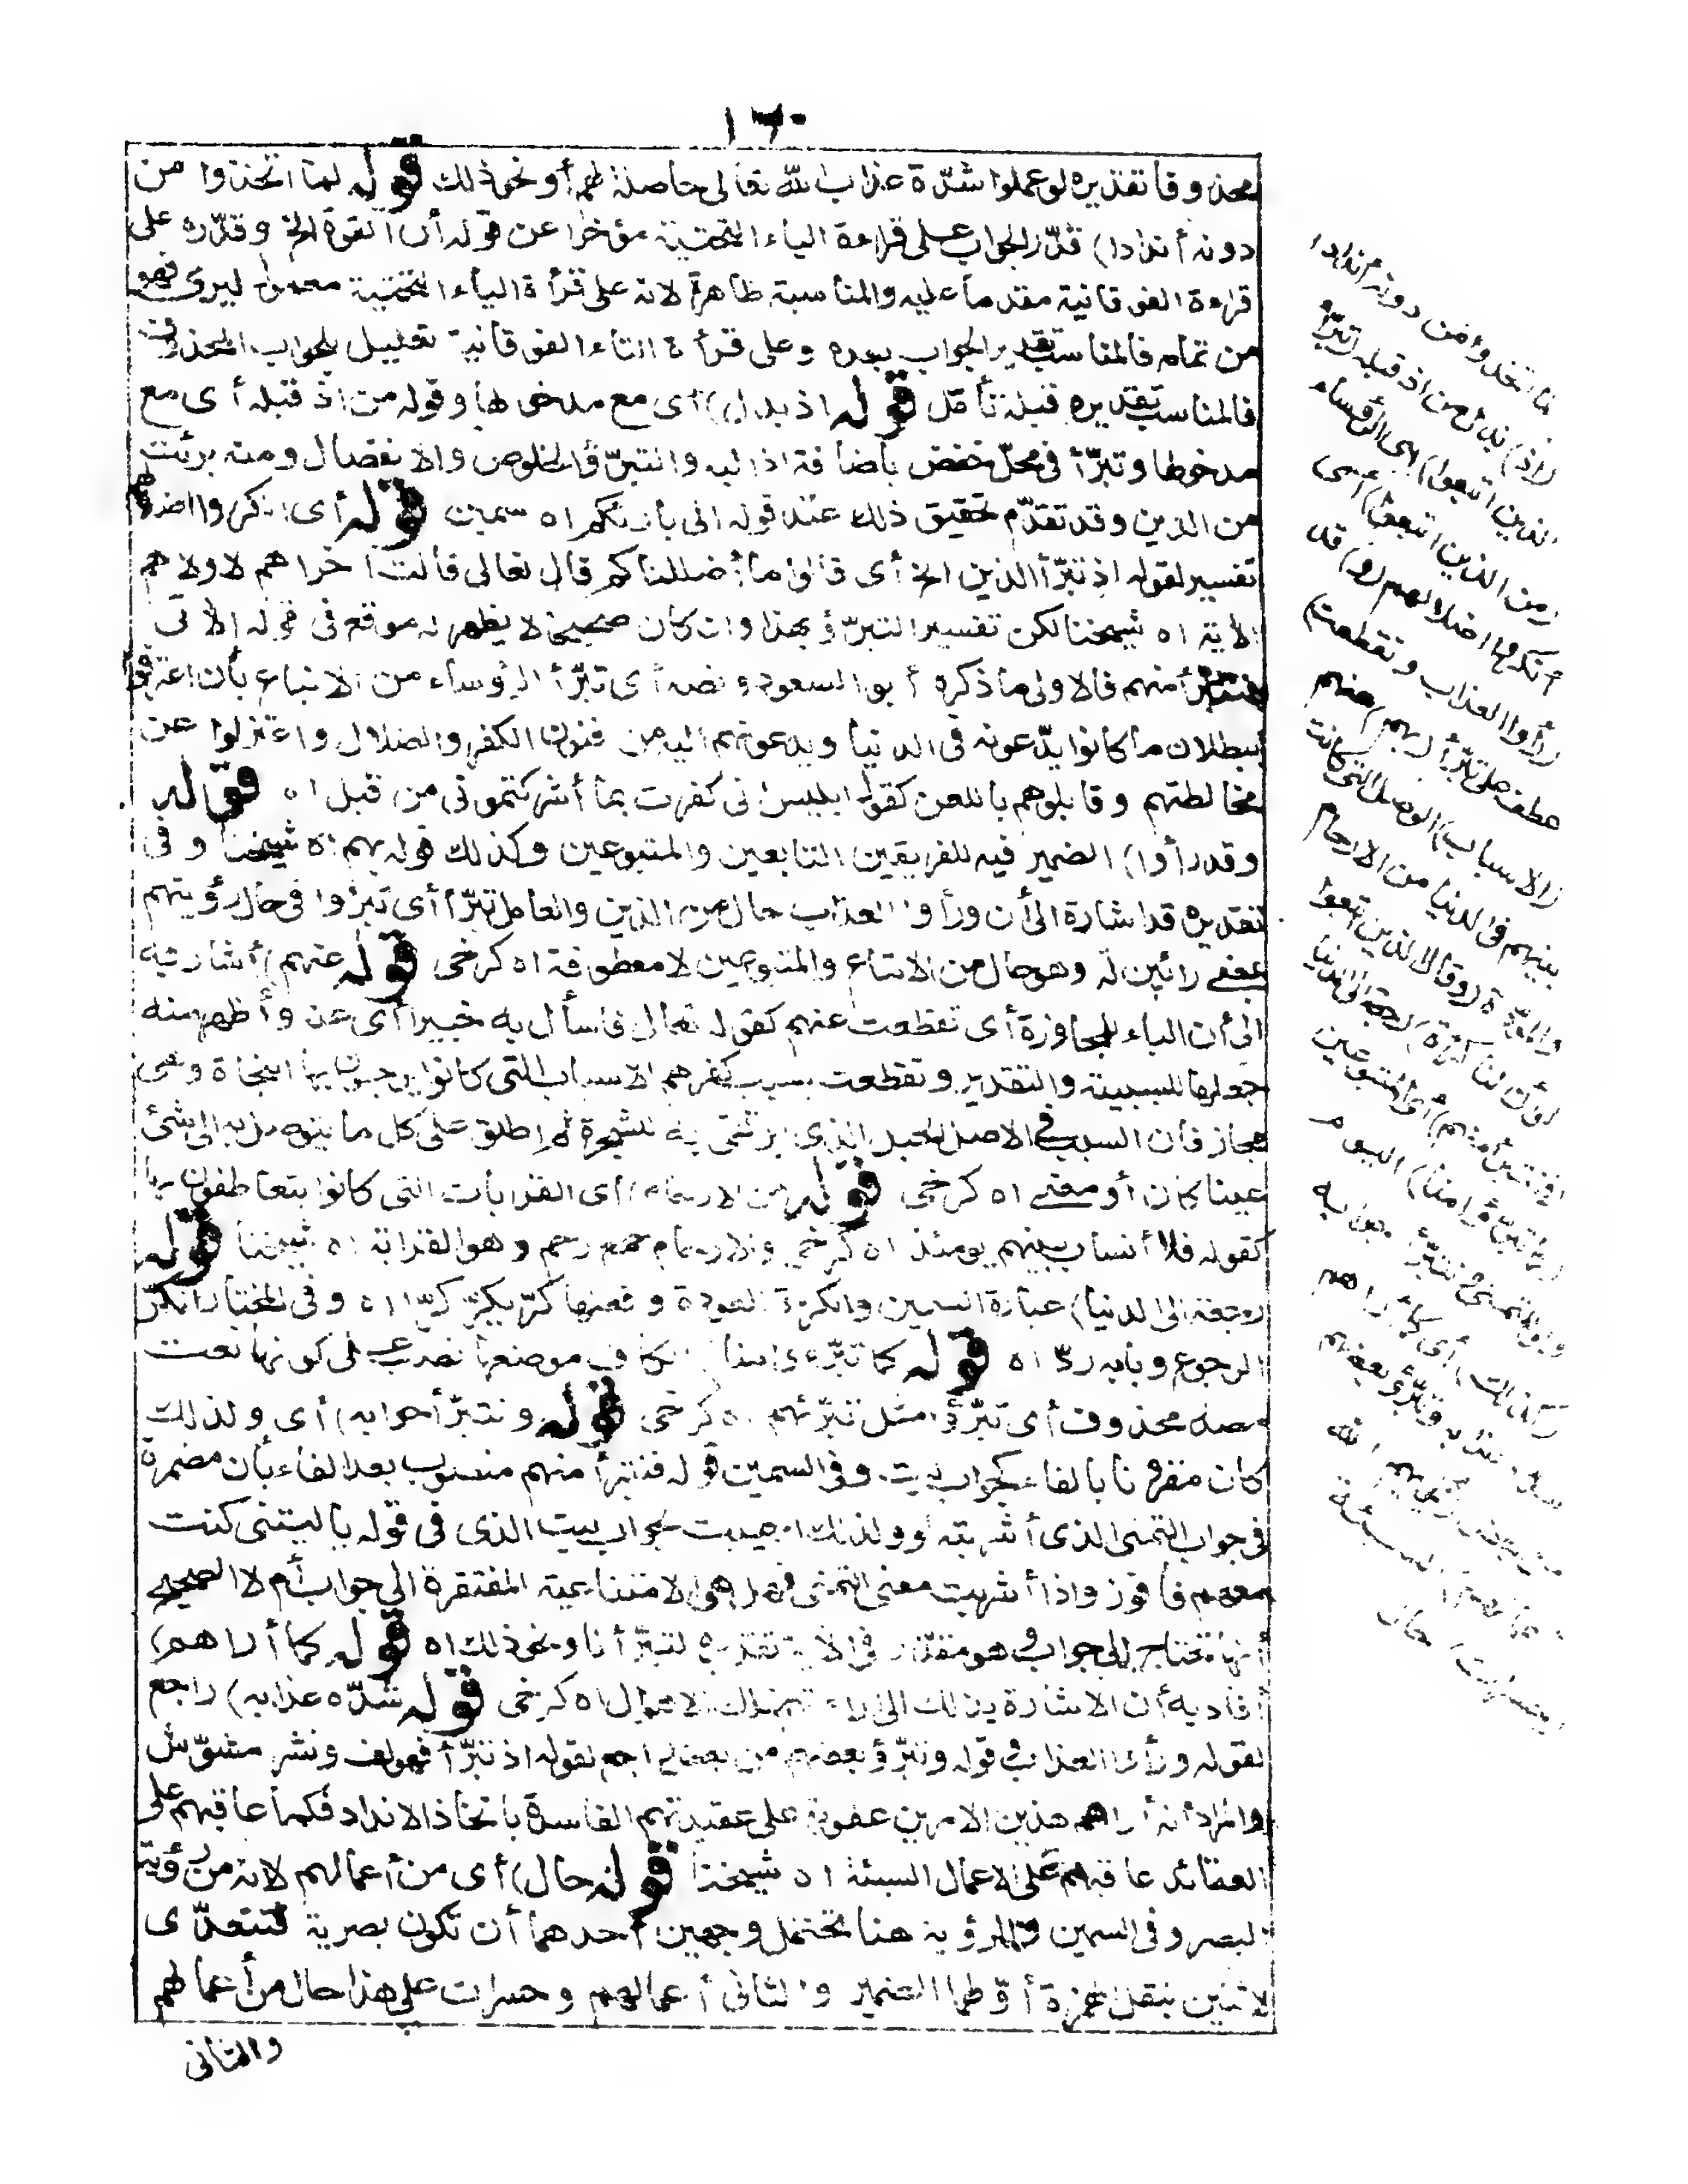 ١٦٠
محذوفا تقديره لو علموا شدّة عذاب الله تعالى حاصلة لهم أو نحو ذلك قوله لما اتخذوا من
دونه أندادا) قدّر الجواب على قراءة الياء التحتية مؤخرا عن قوله أن القوة الخ وقدّره على
قراءة الفوقانية مقدما عليه والمناسبة ظاهرة لانه على قرأة الياء التحتية معمول ليرى فهو
من تمامه فالمناسب تقدير الجواب بعده وعلى قرأة التاء الفوقانية تعليل للجواب المحذوف
فالمناسب تقديره قبله تأمّل قوله اذ بدل) أى مع مدخولها وقوله من اذ قبله أى مع
مدخولها وتبرّأ فى محلّ خفض باضافة اذ اليه والتبرّؤ الخلوص والانفصال ومنه برئت
من الدين وقد تقدّم تحقيق ذلك عند قوله الى بارئكم اه سمين قوله أى انكروا اضلالهم
تفسير لقوله اذ تبرّأ الذين الخ أى قائلين ما أضللناكم قال تعالى قالت أخراهم لاولاهم
الآية اه شيخنا لكن تفسير التبرّؤ بهذا وان كان صحيحا لا يظهر له موقع فى قوله الآتى
فنتبرّأ منهم فالاولى ما ذكره أبو السعود ونصه أى تبرّأ الرؤساء من الاتباع بأن اعترفوا
ببطلان ما كانوا يدّعونه فى الدنيا ويدعونهم اليه من فنون الكفر والضلال واعتزلوا عن
مخالطتهم وقابلوهم باللعن كقول ابليس انى كفرت بما أشركتمونى من قبل اه قوله
وقد رأوا) الضمير فيه للفريقين التابعين والمتبوعين وكذلك قوله بهم اه شيخنا وفى
تقديره قد اشارة الى أن ورأوا العذاب حال من الذين والعامل تبرّأ أى تبرؤا فى حال رؤيتهم
بمعنى رائين له وهو حال من الاتباع والمتبوعين لا معطوفة اه كرخى قوله عنهم) أشار به
الى أن الباء للمجاوزة أى تقطعت عنهم كقوله تعالى فاسأل به خبيرا أى عنه وأظهر منه
جعلها للسببية والتقدير وتقطعت بسبب كفرهم الاسباب التى كانوا يرجون بها النجاة وهى
مجاز فان السبب فى الاصل الحبل الذى يرتقى به للشجرة ثم اطلق على كل ما يتوصل به الى شئ
عينا كان أو معنى اه كرخى قوله من الارحام) أى القرابات التى كانوا يتعاطفون بها
كقوله فلا أنساب بينهم يومئذ اه كرخى والارحام جمع رحم وهو القرابة اه شيخنا قوله
رجعة الى الدنيا) عبارة السمين والكرة العودة وفعلها كرّ يكرّ كرّا اه وفى المختار الكرّ
الرجوع وبابه ردّ اه قوله كما تبرّءوا منا) الكاف موضعها نصب على كونها نعت
مصدر محذوف أى تبرّؤا مثل تبرّئهم اه كرخى قوله ونتبرّأ جوابه) أى ولذلك
كان مقرونا بالفاء كجواب ليت وفى السمين قوله فنتبرأ منهم منصوب بعد الفاء بأن مضمرة
فى جواب التمنى الذى أشربته لو ولذلك اجيبت بجواب ليت الذى فى قوله يا ليتنى كنت
معهم فأفوز واذا أشربت معنى التمنى فهل هى الامتناعية المفتقرة الى جواب أم لا الصحيح
أنها تحتاج الى جواب وهو مقدّر فى الآية تقديره لتبرّأنا ونحو ذلك اه قوله كما أراهم)
أفاد به أن الاشارة بذلك الى اراءتهم تلك الاهوال اه كرخى قوله شدّة عذابه) راجع
لقوله ورأوا العذاب وقوله وتبرّؤ بعضهم من بعض راجع لقوله اذ تبرّأ فهو لف ونشر مشوّش
والمراد أنه أراهم هذين الامرين عقوبة على عقيدتهم الفاسدة باتخاذ الانداد فكما عاقبهم على
العقائد عاقبهم على الاعمال السيئة اه شيخنا قوله حال) أى من أعمالهم لانه من رؤية
البصر وفى السمين والرؤية هنا تحتمل وجهين أحدهما أن تكون بصرية فتتعدّى
لاثنين بنقل الهمزة أوّلهما الضمير والثانى أعمالهم وحسرات على هذا حال من أعمالهم
والثانى
لما اتخذوا من دونه أندادا
(اذ) بدل من اذ قبله (تبرّأ
الذين اتبعوا) أى الرؤساء
(من الذين اتبعوا) أى
أنكروا اضلالهم (و) قد
(رأوا العذاب وتقطعت)
عطف على تبرّأ (بهم) عنهم
(الاسباب) الوصل التى كانت
بينهم فى الدنيا من الارحام
والمودّة (وقال الذين اتبعوا
لو أن لنا كرّة) رجعة الى الدنيا
(فنتبرأ منهم) أى المتبوعين
(كما تبرّؤا منا) اليوم
ولو للتمنى ونتبرّأ جوابه
(كذلك) أى كما أراهم
شدة عذابه وتبرّؤ بعضهم
من بعض (يريهم الله
أعمالهم) السيئة
(حسرات) حال